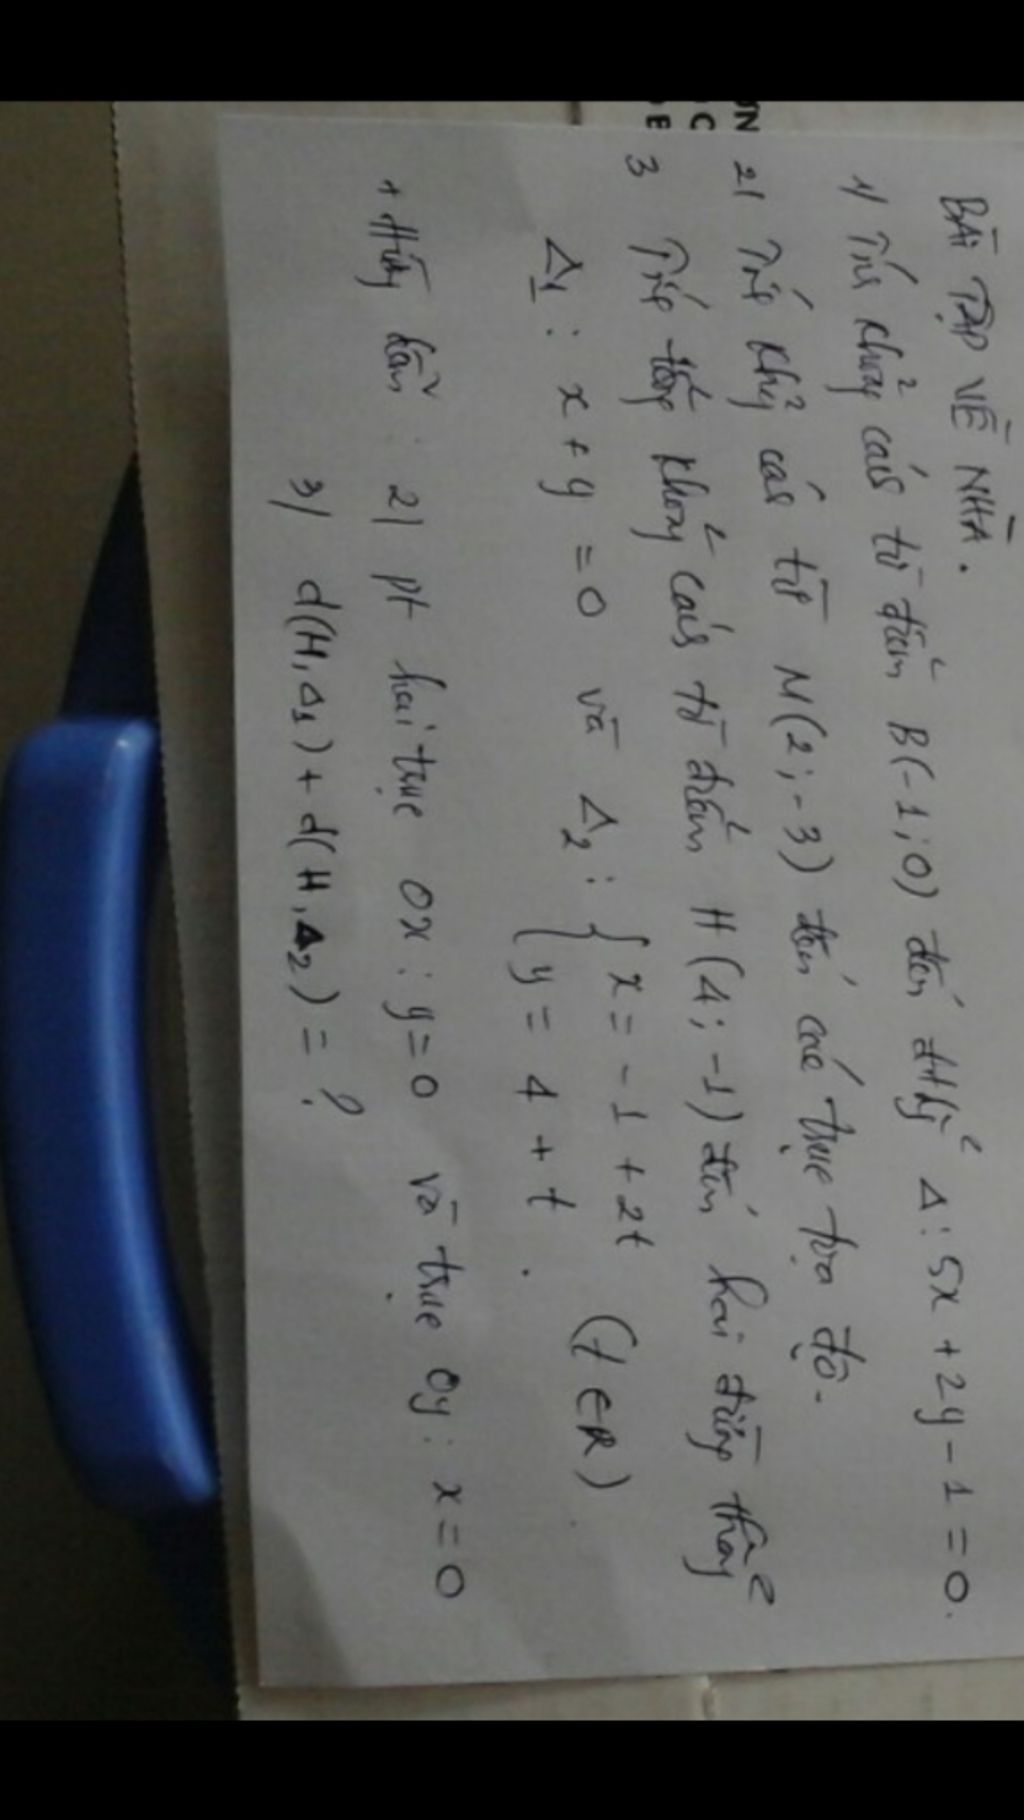 BÀI TẬP VỀ NHÀ.
1) Tính khoảng cách từ điểm B(-1;0) đến đthg Δ: 5x + 2y - 1 = 0.
2) Tính khoảng cách từ M(2;-3) đến các trục tọa độ.
3 Tính tổng khoảng cách từ điểm H(4;-1) đến hai đường thẳng
Δ1: x + y = 0 và Δ2: { x = -1 + 2t (t ∈ R)
y = 4 + t.
+ Hướng dẫn: 2) pt hai trục Ox: y = 0 và trục Oy: x = 0
3) d(H, Δ1) + d(H, Δ2) = ?
ƠN
C
E